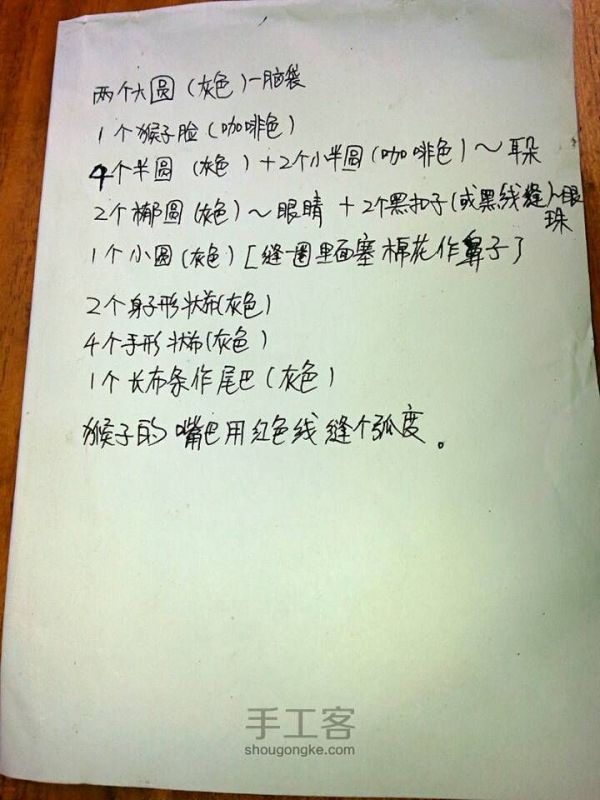 两个大圆（灰色）—脑袋
1个猴子脸（咖啡色）
4个半圆（灰色）+2个小半圆（咖啡色）～耳朵
2个椭圆（灰色）～眼睛+2个黑扣子（或黑线缝）～眼珠
1个小圆（灰色）[缝一圈里面塞棉花作鼻子]
2个身子形状布（灰色）
4个手形状布（灰色）
1个长布条作尾巴（灰色）
猴子的嘴巴用红色线缝个弧度。
手工客
shougongke.com